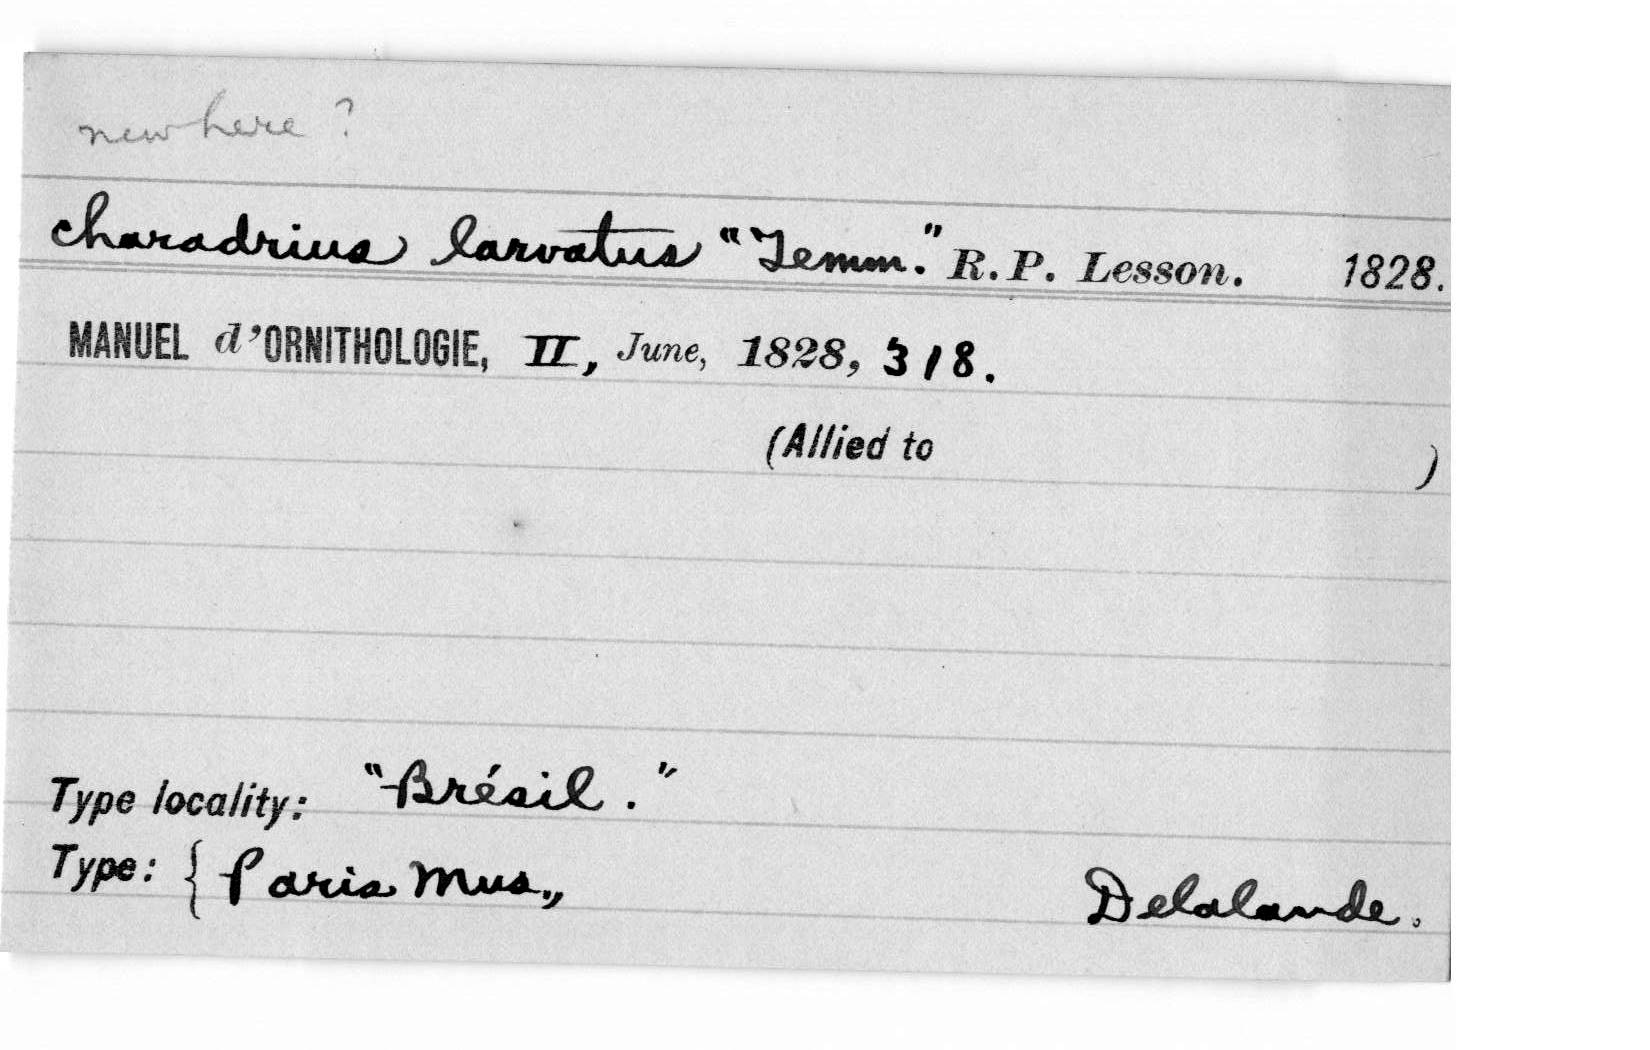 new here ?
charadrius larvatus "Temm." R. P. Lesson. 1828.
MANUEL d'ORNITHOLOGIE, II, June, 1828, 318.
(Allied to )
Type locality: "Brésil."
Type: { Paris Mus., Delalande.